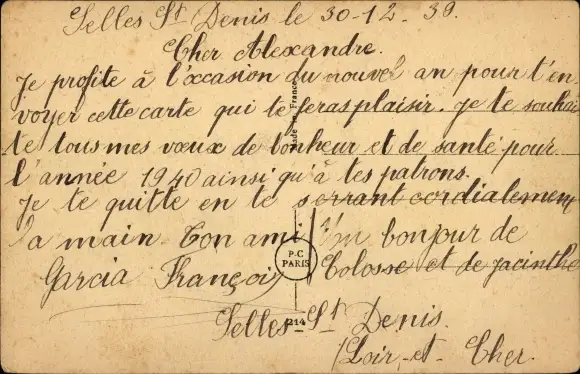 Selles St Denis le 30-12-39.
Cher Alexandre.
Je profite à l'occasion du nouvel an pour t'en
voyer cette carte qui te feras plaisir. Je te souhai
te tous mes vœux de bonheur et de santé pour
l'année 1940 ainsi qu'à tes patrons.
Je te quitte en te serrant cordialement
la main. Ton ami
Garcia François
Un bonjour de
Colosse et de jacinthe
P.C
PARIS
214
Selles St Denis.
Loir-et-Cher.